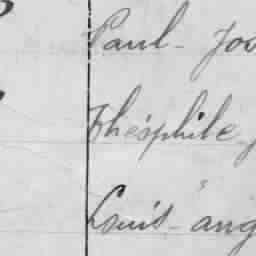 Paul - Jos
Théophile - J
Louis - ang